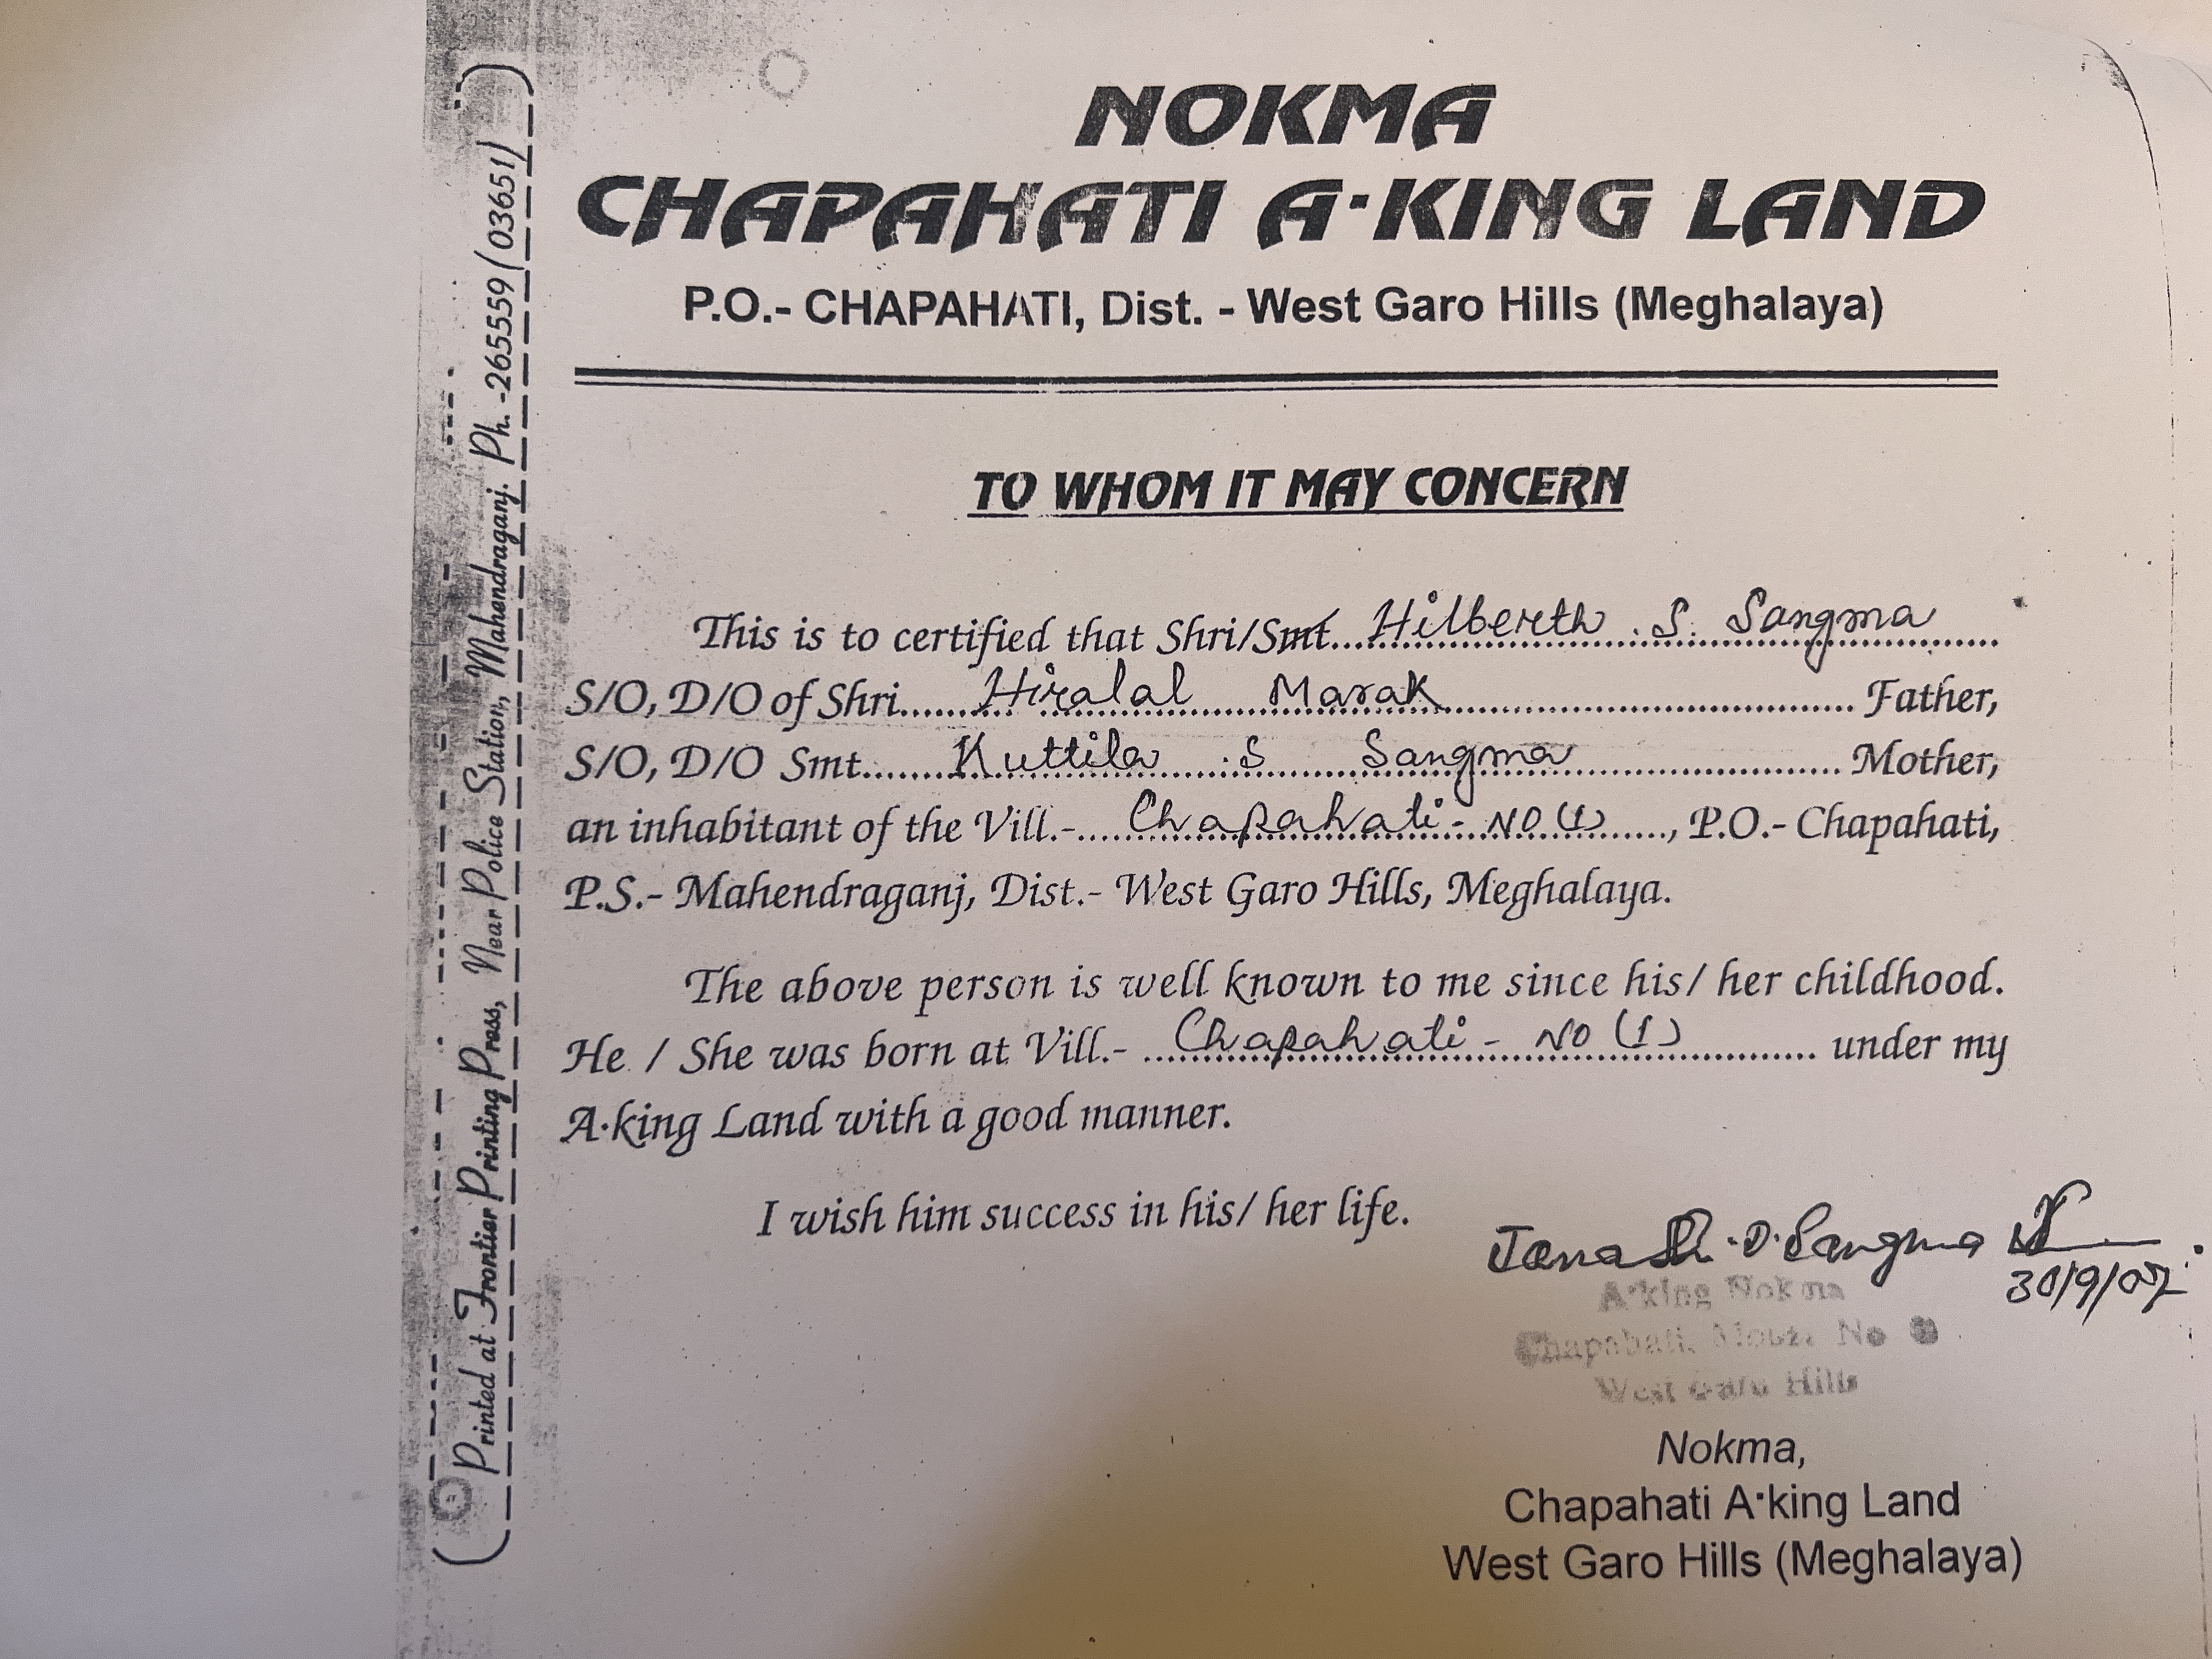 NOKMA
CHAPAHATI A·KING LAND
P.O.- CHAPAHATI, Dist. - West Garo Hills (Meghalaya)
TO WHOM IT MAY CONCERN
This is to certified that Shri/Smt... Hilberth . S. Sangma
S/O, D/O of Shri...... Hiralal Marak ...... Father,
S/O, D/O Smt...... Kuttila .S Sangma ...... Mother,
an inhabitant of the Vill.-.... Chapahati - NO (1) ....., P.O.- Chapahati,
P.S.- Mahendraganj, Dist.- West Garo Hills, Meghalaya.
The above person is well known to me since his/ her childhood.
He / She was born at Vill.- ... Chapahati - NO (1) ...... under my
A·king Land with a good manner.
I wish him success in his/ her life.
D. Sangma
30/9/07
A·king Nokma
Chapahati, No
West Garo Hills
Nokma,
Chapahati A·king Land
West Garo Hills (Meghalaya)
(Printed at Frontier Printing Press, Near Police Station, Mahendraganj. Ph. -265559 (03651))